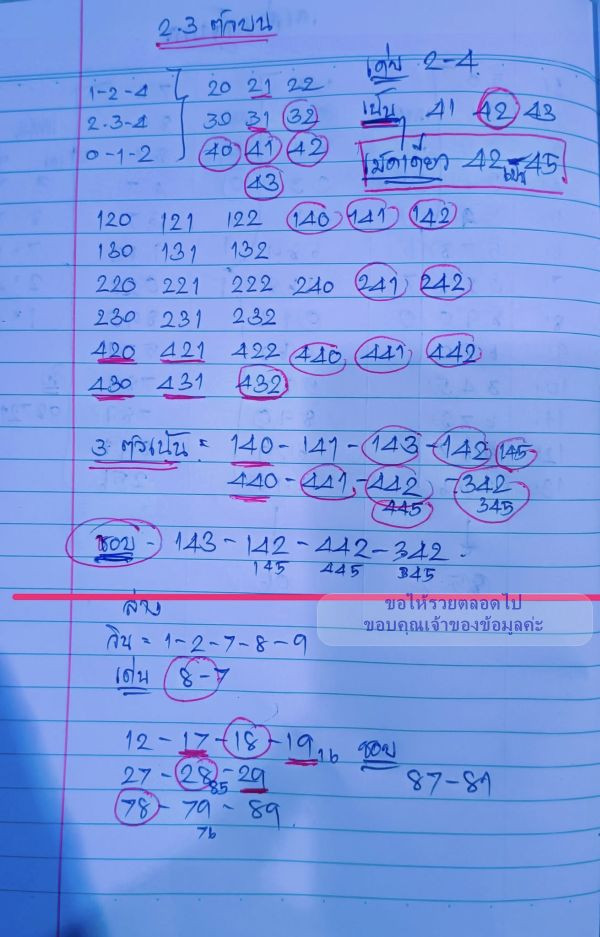 2.3 ตัวบน
1-2-4 20 21 22 เด่น 2-4
2-3-4 30 31 32 เน้นๆ 41 42 43
0-1-2 40 41 42 เม็ดเดียว 42 เป็น 45
43
120 121 122 140 141 142
130 131 132
220 221 222 240 241 242
230 231 232
420 421 422 440 441 442
430 431 432
3 ตัวเน้น = 140 - 141 - 143 - 142 145
440 - 441 - 442 - 342
445 345
ชอบ - 143 - 142 - 442 - 342
145 445 345
ขอให้รวยตลอดไป
ขอบคุณเจ้าของข้อมูลค่ะ
ล่าง
วิน = 1-2-7-8-9
เด่น 8-7
12 - 17 - 18 - 19 16 ชอบ
27 - 28 - 29 87-81
85
78 - 79 - 89
76